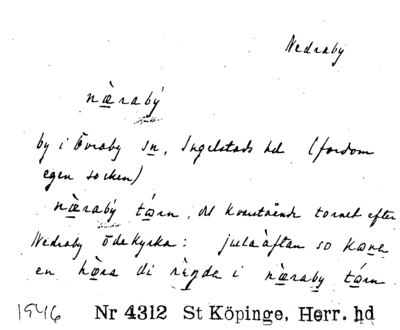 Nedraby
næ̀rabý
by i Övraby sn, Ingelstads hd (fordom
egen socken)
næ̀rabý tɷrn, det kvarstående tornet efter
Nedraby ödekyrka: julaàftan so kɷne
en hɷ̀ra di rìŋde i næ̀raby tɷrn.
1946 Nr 4312 St Köpinge, Herr. hd